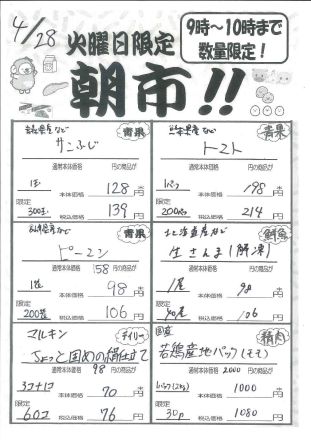 4/28
火曜日限定
9時～10時まで
数量限定！
朝市!!
青森県産など
青果
サンふじ
通常本体価格 円の商品が
1玉 本体価格 128円
限定
300玉 税込価格 139円
熊本県産など
青果
トマト
通常本体価格 円の商品が
1パック 本体価格 198円
限定
200パック 税込価格 214円
青果
ピーマン
通常本体価格 158円の商品が
1袋 本体価格 98円
限定
200袋 税込価格 106円
北海道産など
鮮魚
生さんま(解凍)
通常本体価格 円の商品が
1尾 本体価格 98円
限定
税込価格 106円
マルキン
デイリー
ちょっと固めの絹仕立て
通常本体価格 98円の商品が
3コ+1コ 本体価格 70円
限定
60コ 税込価格 76円
国産
精肉
若鶏産地パック(モモ)
通常本体価格 2000円の商品が
1パック(2kg) 本体価格 1000円
限定
30p 税込価格 1080円